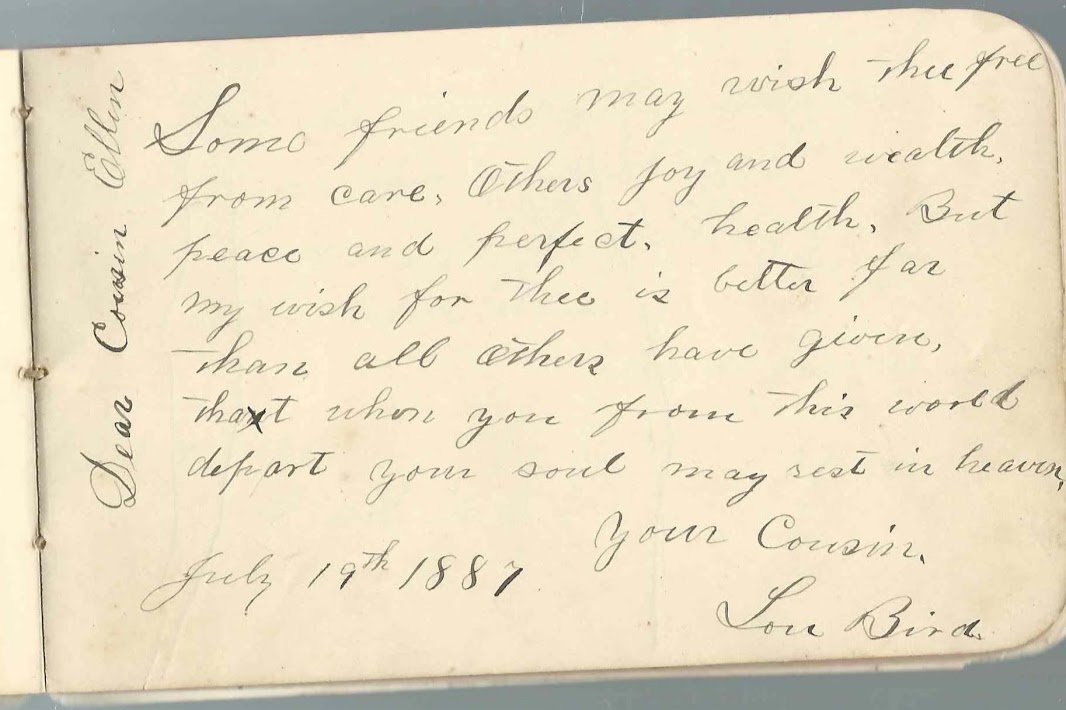 Dear Cousin Ellen
Some friends may wish thee free
from care, Others joy and wealth,
peace and perfect, health, But
my wish for thee is better far
than all Others have given,
that when you from this world
depart your soul may rest in heaven,
Your Cousin,
July 19th 1887
Lou Bird